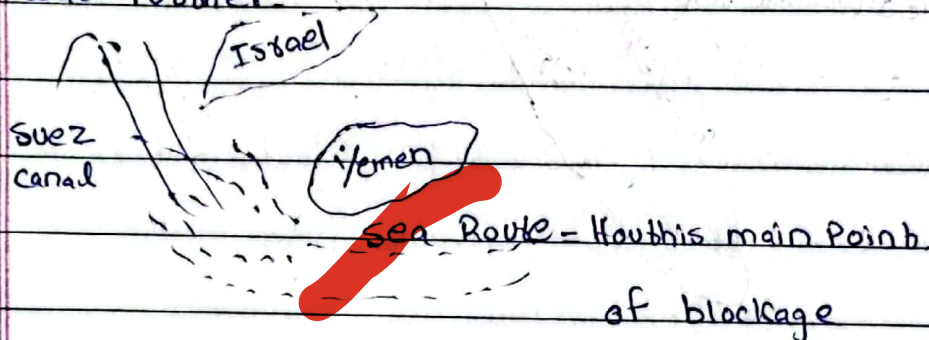 Israel
Suez
canal
Yemen
Sea Route - Houthis main Point
of blockage